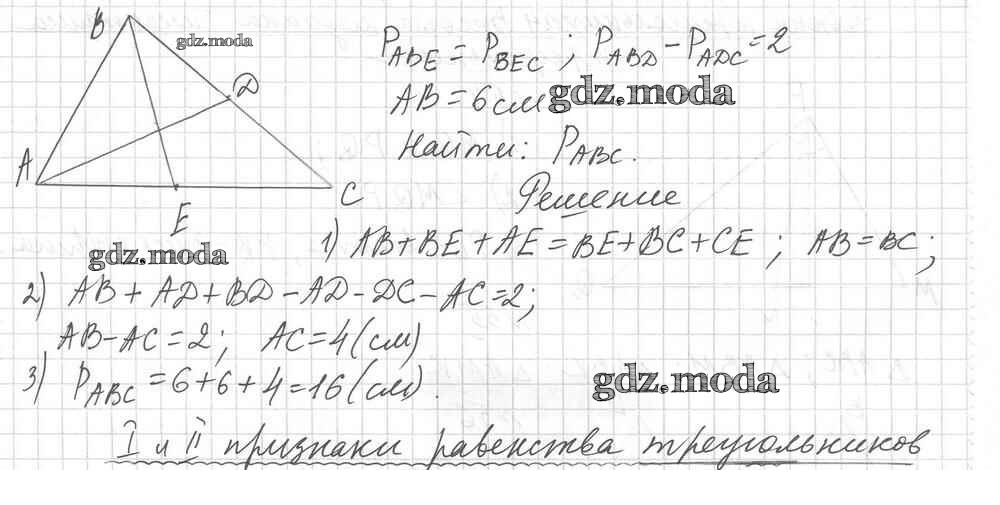 B
gdz.moda
D
A
C
E
P_ABE = P_BEC ; P_ABD - P_ADC = 2
AB = 6 см
gdz.moda
Найти: P_ABC.
Решение
1) AB + BE + AE = BE + BC + CE ; AB = BC ;
gdz.moda
2) AB + AD + BD - AD - DC - AC = 2;
AB - AC = 2; AC = 4 (см)
3) P_ABC = 6 + 6 + 4 = 16 (см).
gdz.moda
I и II признаки равенства треугольников